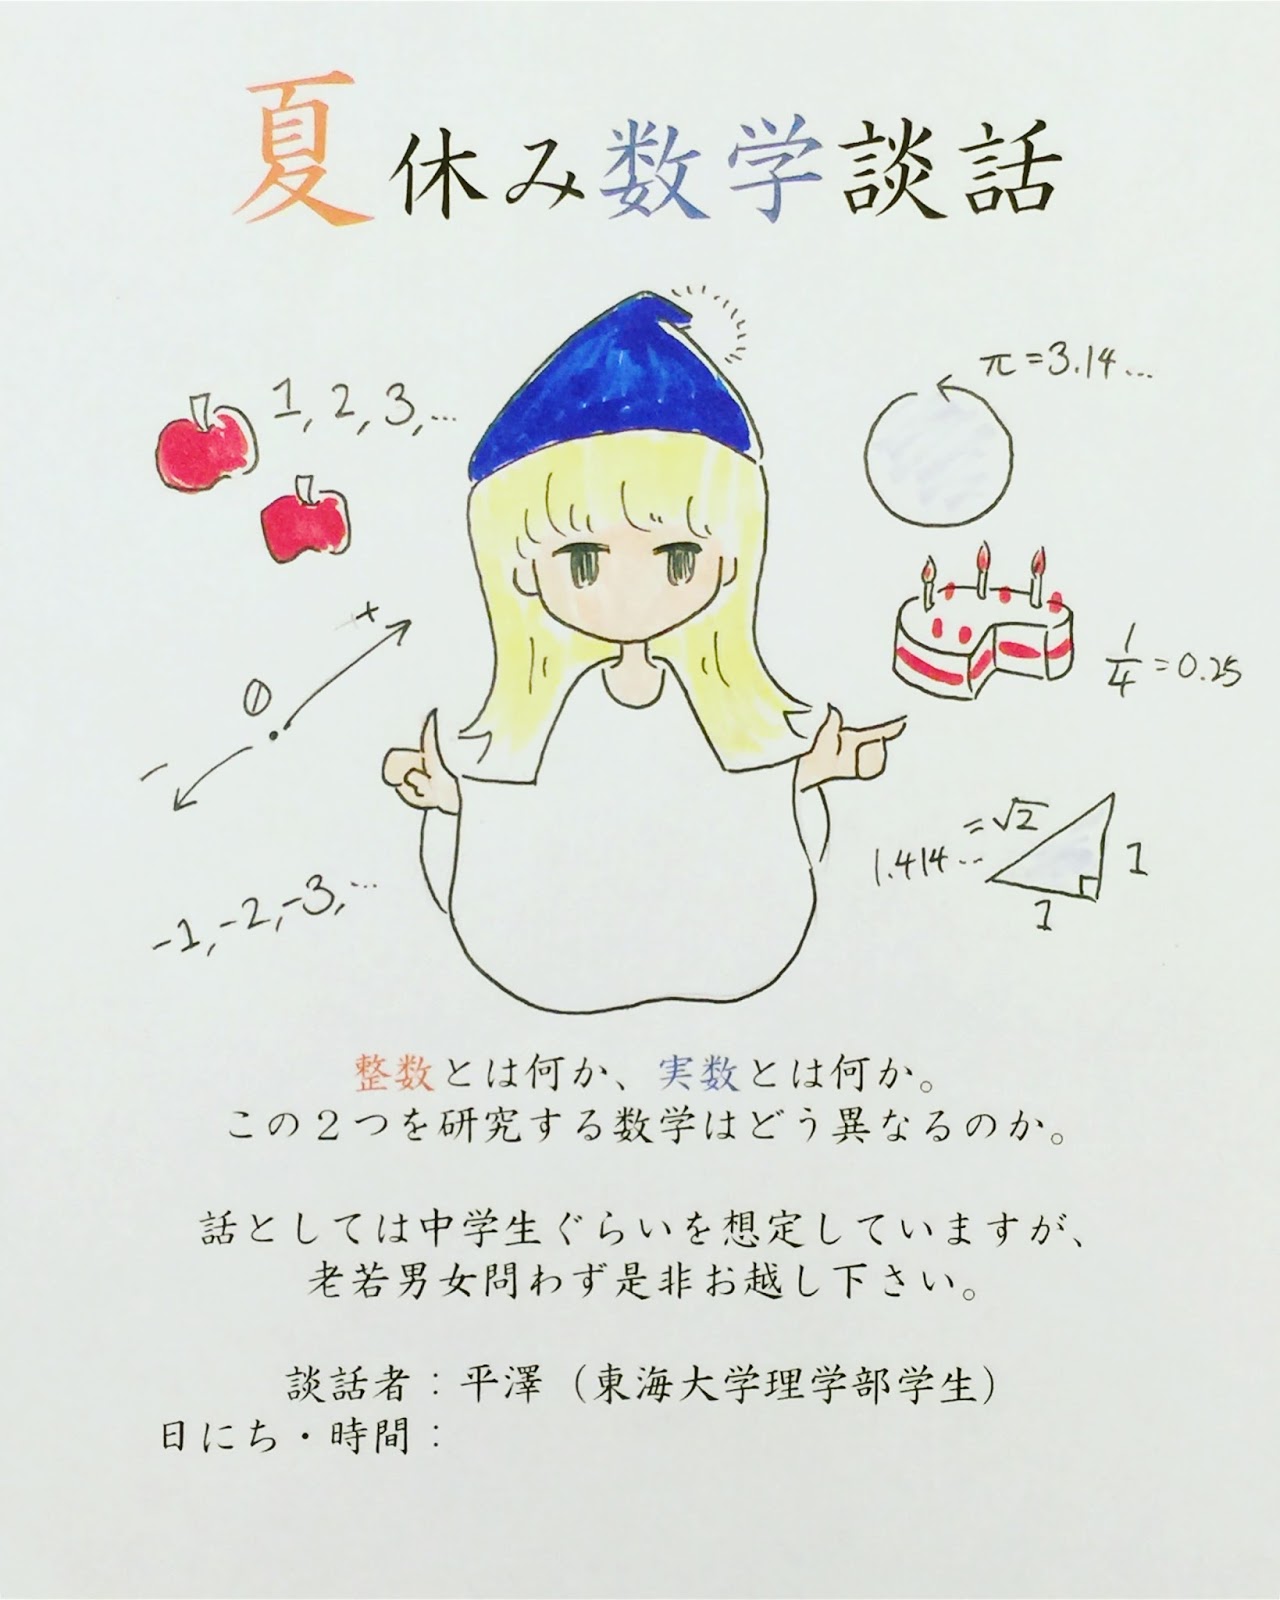 夏休み数学談話
1, 2, 3, ...
π = 3.14...
+
0
-
1/4 = 0.25
= √2
1.414...
1
1
-1, -2, -3, ...
整数とは何か、実数とは何か。
この２つを研究する数学はどう異なるのか。
話としては中学生ぐらいを想定していますが、
老若男女問わず是非お越し下さい。
談話者：平澤（東海大学理学部学生）
日にち・時間：